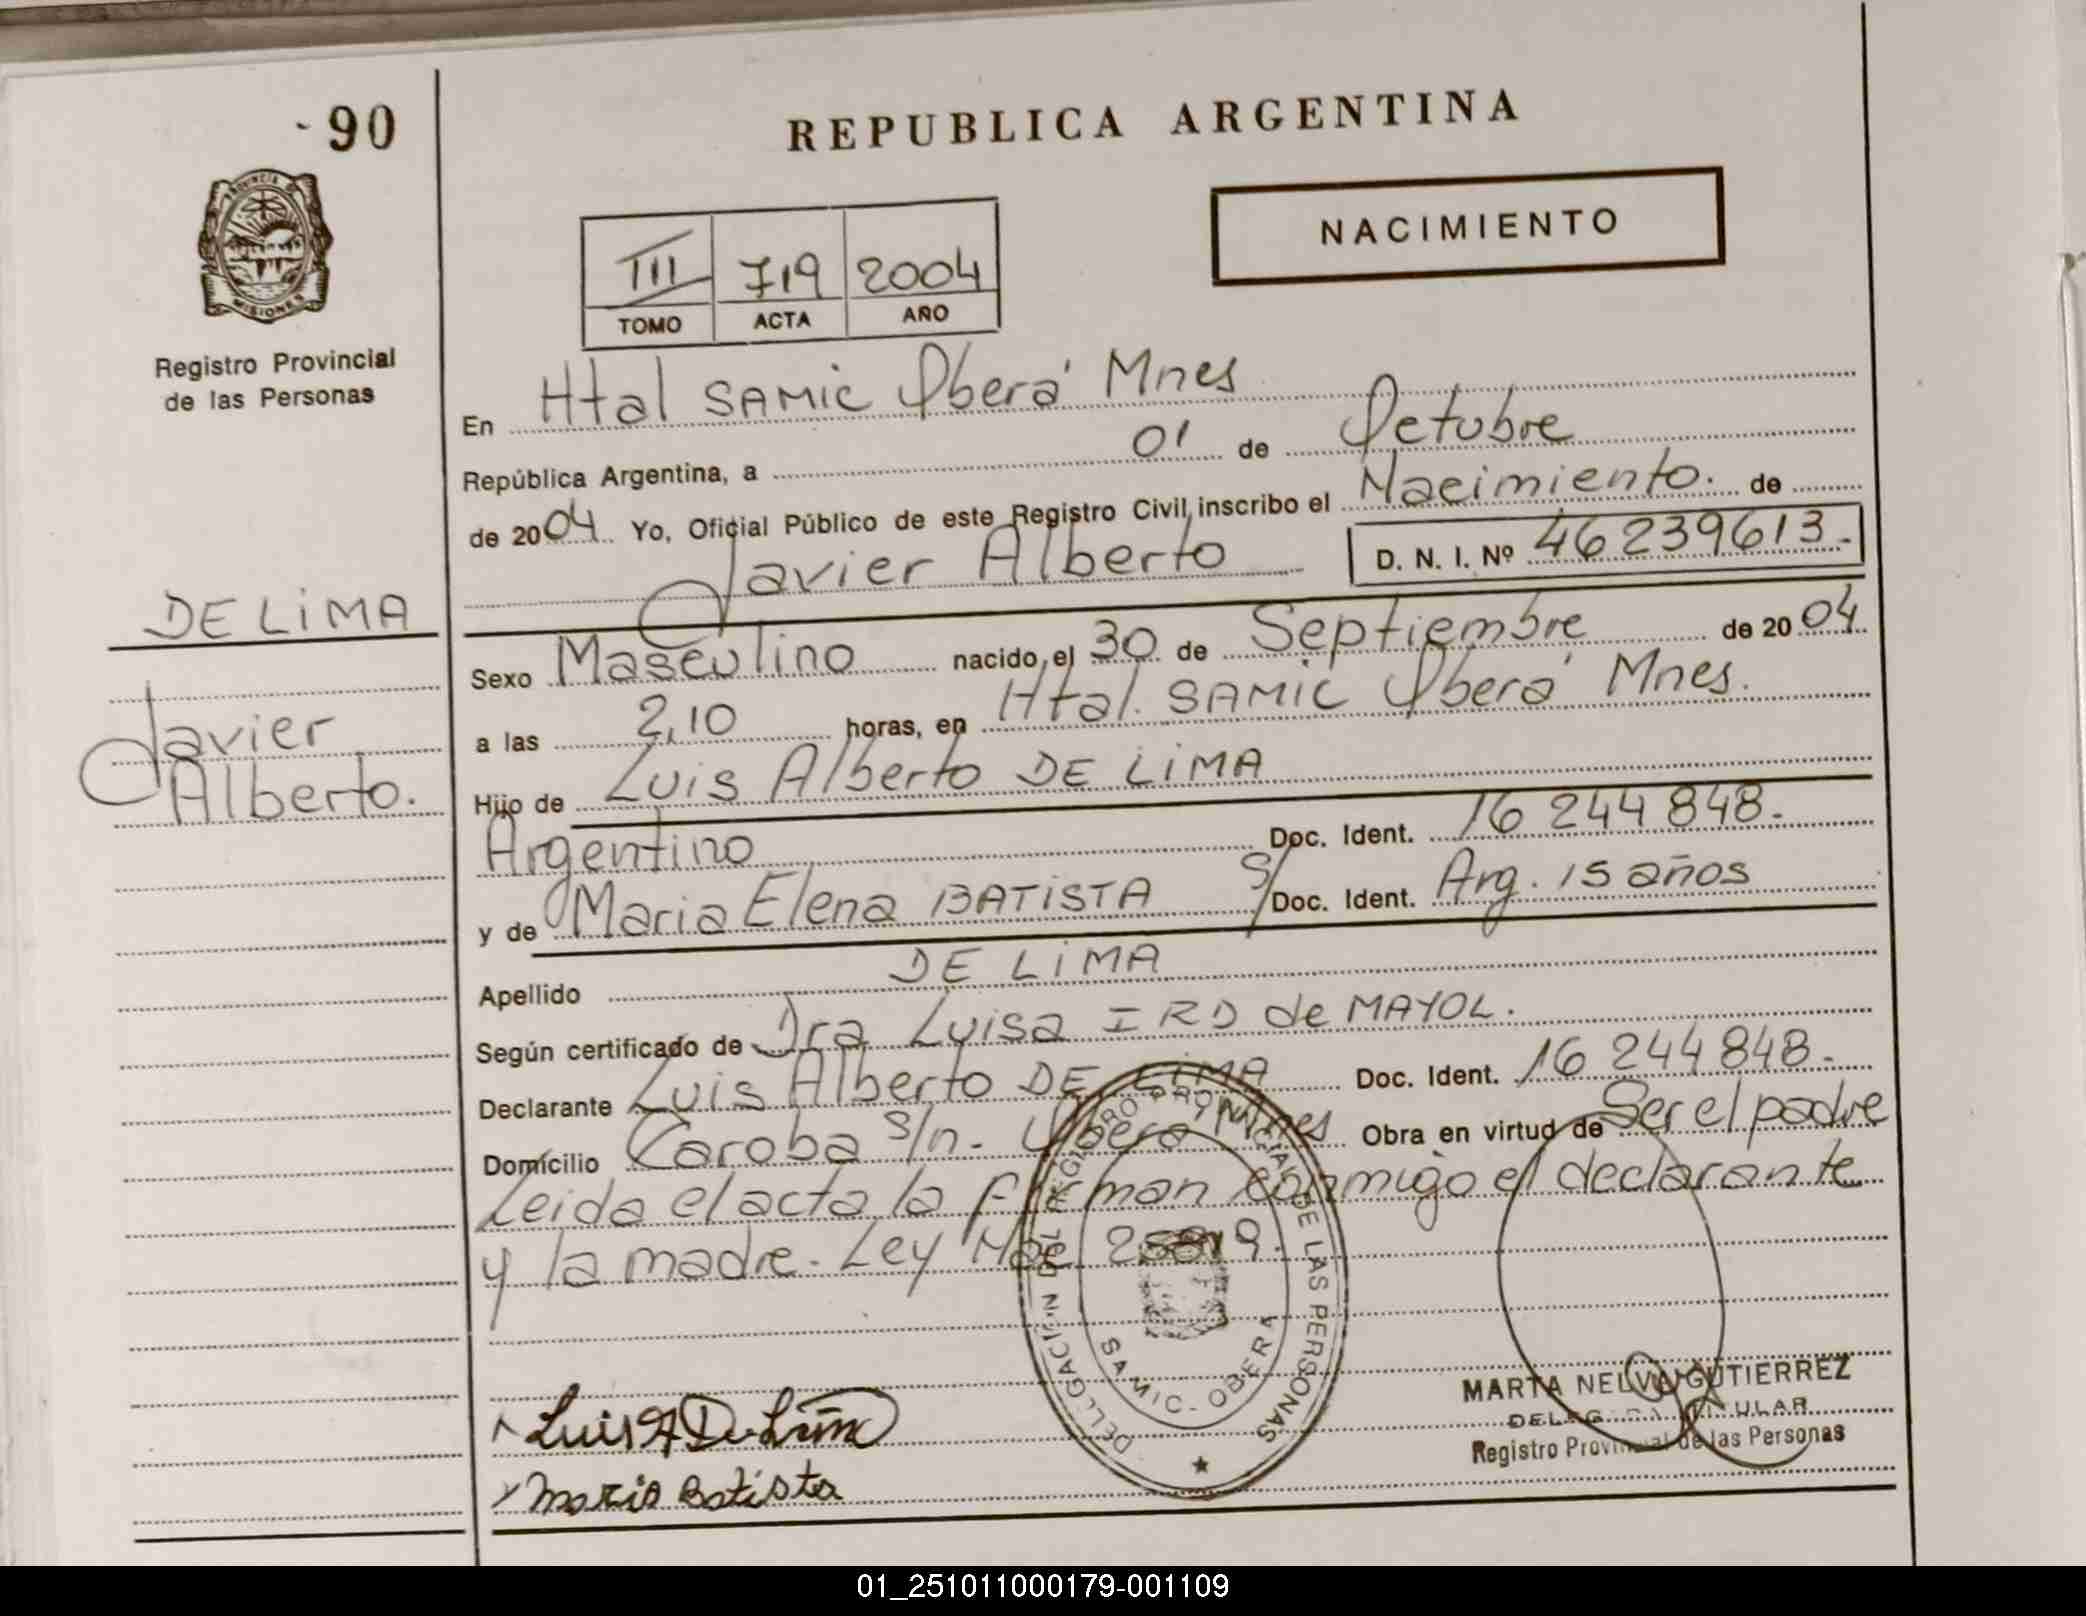 90
REPUBLICA ARGENTINA
NACIMIENTO
PROVINCIA DE
MISIONES
Registro Provincial
de las Personas
III 719 2004
TOMO ACTA AÑO
En Htal SAMIC Oberá Mnes
República Argentina, a 01 de Octubre
de 2004 Yo, Oficial Público de este Registro Civil inscribo el Nacimiento. de
Javier Alberto D. N. I. Nº 46239613.
DE LiMA
Javier
Alberto.
Sexo Masculino nacido el 30 de Septiembre de 2004
a las 2,10 horas, en Htal. SAMIC Oberá Mnes.
Hijo de Luis Alberto DE LiMA
Argentino Doc. Ident. 16 244 848.
y de Maria Elena BATiSTA S/Doc. Ident. Arg. 15 años
Apellido DE LiMA
Según certificado de Dra Luisa IRD de MAYOL.
Declarante Luis Alberto DE LiMA Doc. Ident. 16 244 848.
Domicilio Caroba s/n. Oberá Mnes Obra en virtud de Ser el padre
Leida el acta la firman conmigo el declarante
y la madre. Ley
DELEGACION DEL REGISTRO PROVINCIAL DE LAS PERSONAS
SAMIC - OBERA
Luis A De Lima
Maria Batista
MARTA NELVA GUTIERREZ
DELEGADA TITULAR
Registro Provincial de las Personas
01_251011000179-001109